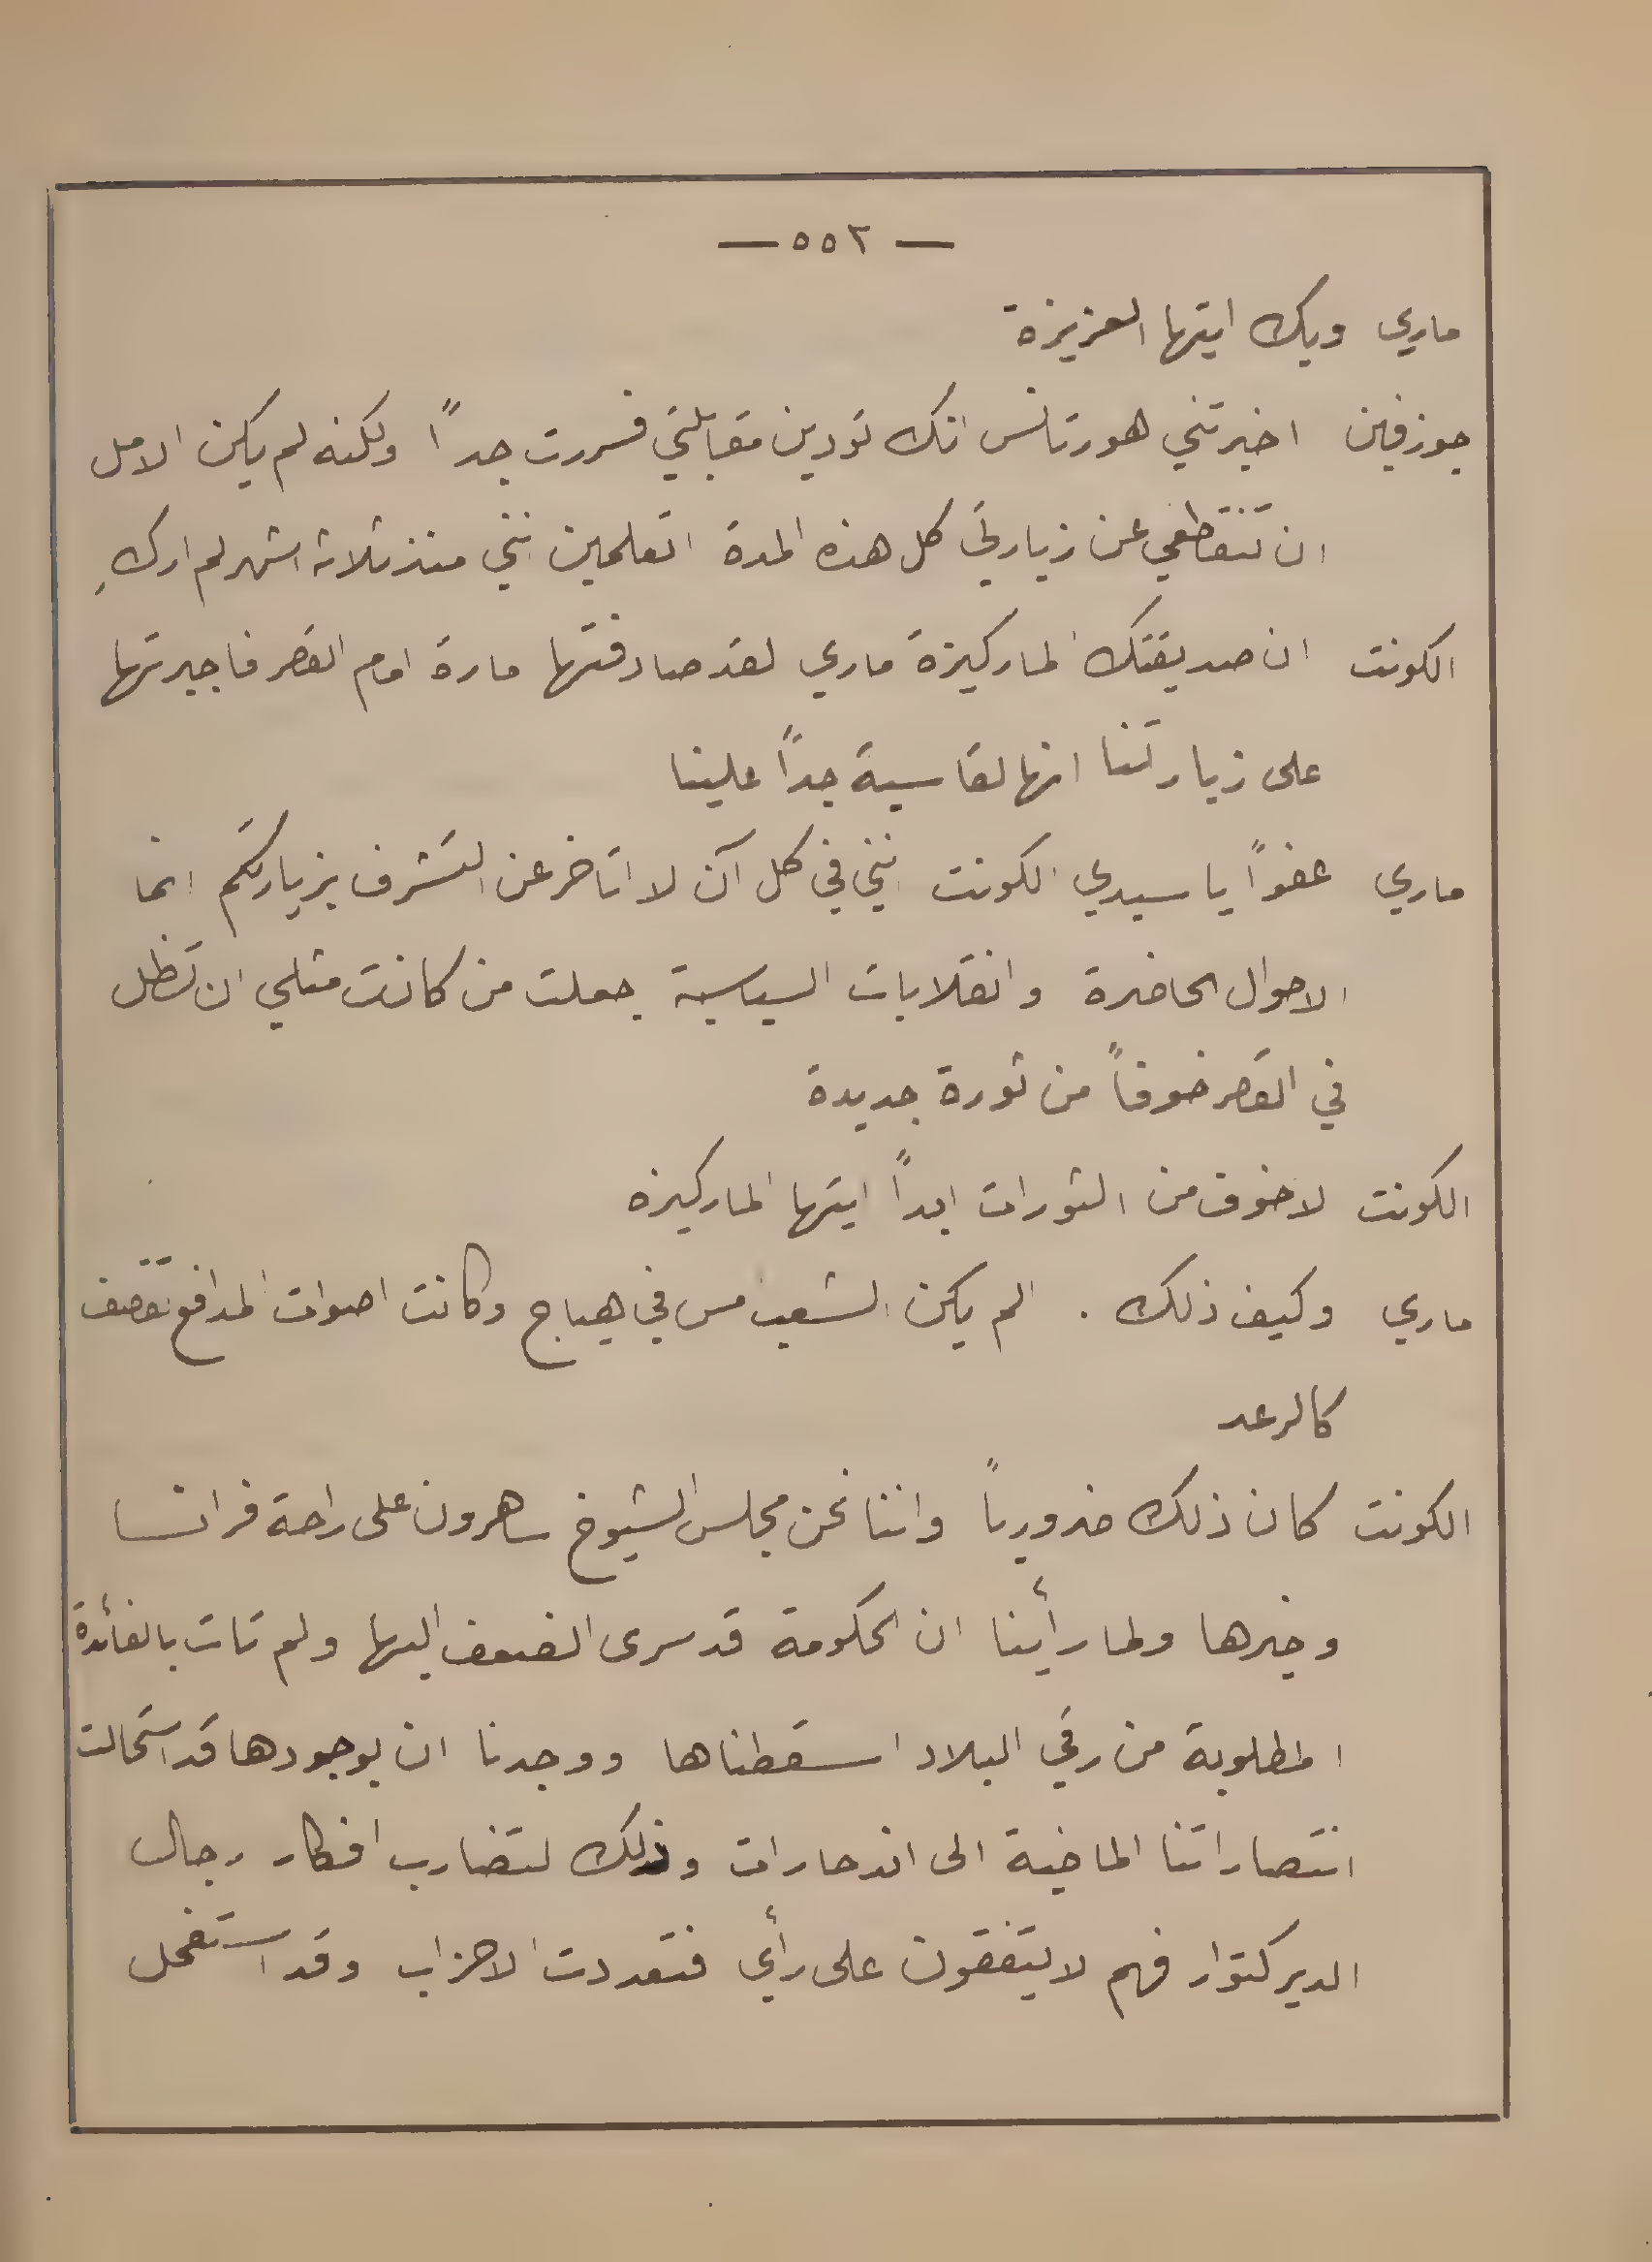 — ٥٥٢ —
ماري وبك ايتها العزيزة
جوزفين اخبرتني هورتانس انك تودين مقابلتي فسررت جداً ولكنه لم يكن الامل
ان تنقطعي عن زيارتي كل هذه المدة اتعلمين انني منذ ثلاثة اشهر لم اركِ
الكونت ان صديقتك الماركيزة ماري لقد صادفتها مارة امام القصر فاجبرتها
على زيارتنا انها لقاسية جداً علينا
ماري عفواً يا سيدي الكونت انني في كل آن لا اتاخر عن التشرف بزيارتكم انما
الاحوال الحاضرة وانقلابات السياسية جعلت من كانت مثلي ان تظل
في القصر خوفاً من ثورة جديدة
الكونت لا خوف من الثورات ابداً ايتها الماركيزه
ماري وكيف ذلك . الم يكن الشعب امس في هياج وكانت اصوات المدافع تقصف
كالرعد
الكونت كان ذلك ضرورياً واننا نحن مجلس الشيوخ ساهرون على راحة فرانسا
وخيرها ولما رأينا ان الحكومة قد سرى الضعف اليها ولم تات بالفائدة
المطلوبة من رقي البلاد اسقطناها ووجدنا ان بوجودها قد استحالت
انتصاراتنا الماضية الى اندحارات وذلك لتضارب افكار رجال
الديركتوار فهم لا يتفقون على رأي فتعددت الاحزاب وقد استفحل